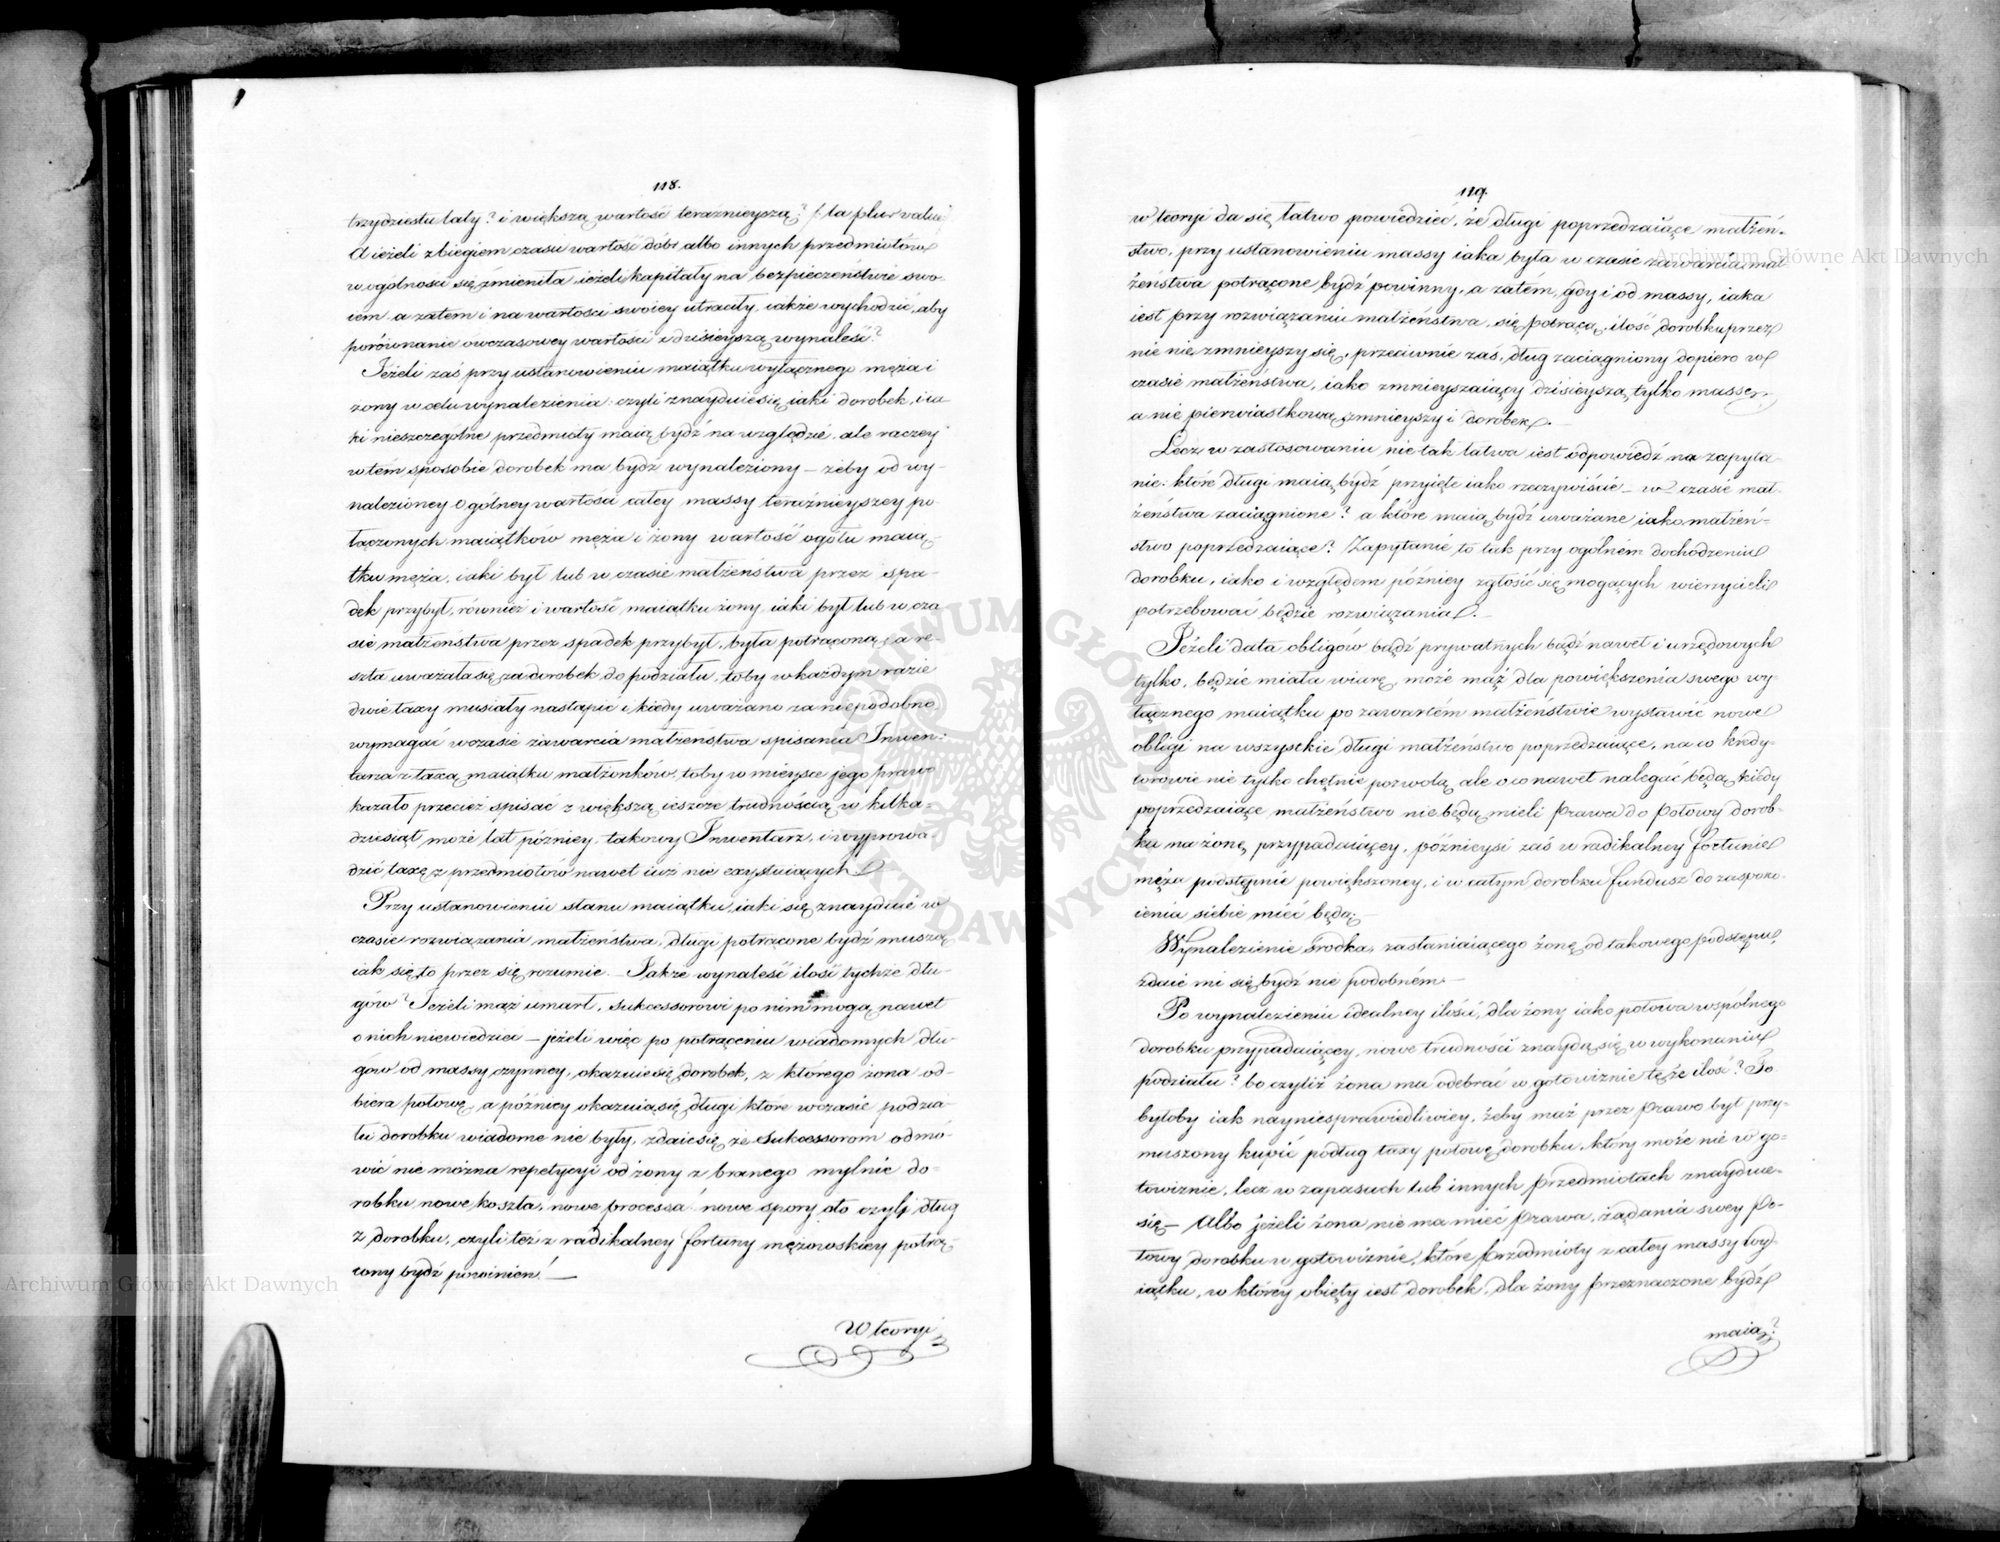 118.
trzydziestu laty? i większą wartość teraznieyszą? /: la plus value
A ieżeli zbiegiem czasu wartość dóbr albo innych przedmiotów
w ogólności się zmieniła ieżeli kapitały na bezpieczeństwie swo-
iém a zatem i na wartości swoiey utraciły, iakże wychodzić, aby
porównanie owczasowey wartości z dzisieyszą wynaleść?
Jeżeli zaś przy ustanowieniu maiątku wyłącznego męża i
żony w celu wynalezienia: czyli znayduie się iaki dorobek, ia-
ki nieszczególne przedmioty maią bydź na względzie, ale raczey
w tém sposobie dorobek ma bydź wynaleziony – żeby od wy-
nalezioney ogólney wartości całey massy teraźnieyszey po-
łączonych maiątków męża i żony wartość ogółu maią-
tku męża, iaki był lub w czasie małżeństwa przez spa-
dek przybył, również i wartość maiątku żony, iaki był lub w cza
sie małżenstwa przez spadek przybył, była potrącona, a re-
szta uważała się za dorobek do podziału, toby w każdym razie
dwie taxy musiały nastąpić i kiedy uważano za niepodobno
wymagać w czasie zawarcia małżenstwa spisania Inwen-
tarza z taxą maiątku małżonków, toby w mieysce jego prawo
kazało przecież spisać z większą ieszcze trudnością w kilka-
dziesiąt może lat pózniey, takowy Inwentarz, i wyprowa-
dzić taxę z przedmiotów nawet iuż nie exystuiących
Przy ustanowieniu stanu maiątku, iaki się znayduie w
czasie rozwiązania małżeństwa, długi potrącone bydź muszą
iak się to przez się rozumie. – Jakże wynaleść ilość tychże dłu-
gów? Jeżeli mąż umarł, Sukcessorowi po nim mogą nawet
o nich niewiedzieć – jeżeli więc po potrąceniu wiadomych dłu-
gów od massy czynney, okazuie się dorobek, z którego żona od-
biera połowę, a późniey okazuią się długi które w czasie podzia-
łu dorobku wiadome nie były, zdaie się że Sukcessorom odmó-
wić nie można repetycyi od żony z branego mylnie do-
robku nowe koszta, nowe processa i nowe spory, ato czyli dług
z dorobku, czyli też z radikalney fortuny mężowskiey potrą-
cony bydź powinien! –
W teoryi
119.
w teoryi da się łatwo powiedzieć, że długi poprzedzaiące małżeń-
stwo, przy ustanowieniu massy iaka była w czasie zawarcia mał-
żeństwa potrącone bydź powinny, a zatém, gdy i od massy, iaka
iest przy rozwiązaniu małżeństwa, się potrącą, ilość dorobku przez
nie nie zmnieyszy się, przeciwnie zaś, dług zaciągniony dopiero w
czasie małżeństwa, iako zmnieyszaiący dzisieyszą tylko massę,
a nie pierwiastkową zmnieyszy i dorobek. –
Lecz w zastosowaniu nie tak łatwa iest odpowiedź na zapyta-
nie: które długi maią bydź przyięte iako rzeczywiście – w czasie mał-
żeństwa zaciągnione? a które maią bydź uważane iako małżeń-
stwo poprzedzaiące? Zapytanie to tak przy ogólném dochodzeniu
dorobku, iako i względem późniey zgłosić się mogących wierzycieli
potrzebować będzie rozwiązania. –
Jeżeli data obligów bądź prywatnych bądź nawet i urzędowych
tylko, będzie miała wiarę, może mąż dla powiększenia swego wy-
łącznego maiątku po zawartém małżenstwie wystawić nowe
obligi na wszystkie długi małżeństwo poprzedzaiące, na co kredy-
torowie nie tylko chętnie pozwolą, ale o co nawet nalegać będą, kiedy
poprzedzaiące małżeństwo nie będą mieli Prawa do połowy dorob-
ku na żonę przypadaiącey, późnieysi zaś w radikalney fortunie
męża podstępnie powiększoney, i w całym dorobku fundusz do zaspoko-
ienia siebie mieć będą. –
Wynalezienie środka, zasłaniaiącego żonę od takowego podstępu,
zdaie mi się bydź nie podobném. –
Po wynalezieniu idealney ilości, dla żony iako połowa wspólnego
dorobku przypadaiącey, nowe trudności znaydą się w wykonaniu
podziału? bo czyliż żona ma odebrać w gotowiznie tę że ilość? To
byłoby iak nayniesprawiedliwiey, żeby mąż przez prawo był przy-
muszony kupić podług taxy połowę dorobku, który może nie w go-
towiznie, lecz w zapasach lub innych Przedmiotach znayduie
się – Albo jeżeli żona nie ma mieć Prawa, żądania swey Po-
łowy dorobku w gotowiznie, które Przedmioty z całey massy may-
iątku, w którey obięty iest dorobek, dla żony Przeznaczone bydź
maią?
Archiwum Główne Akt Dawnych
Archiwum Główne Akt Dawnych
ARCHIWUM GŁÓWNE AKT DAWNYCH